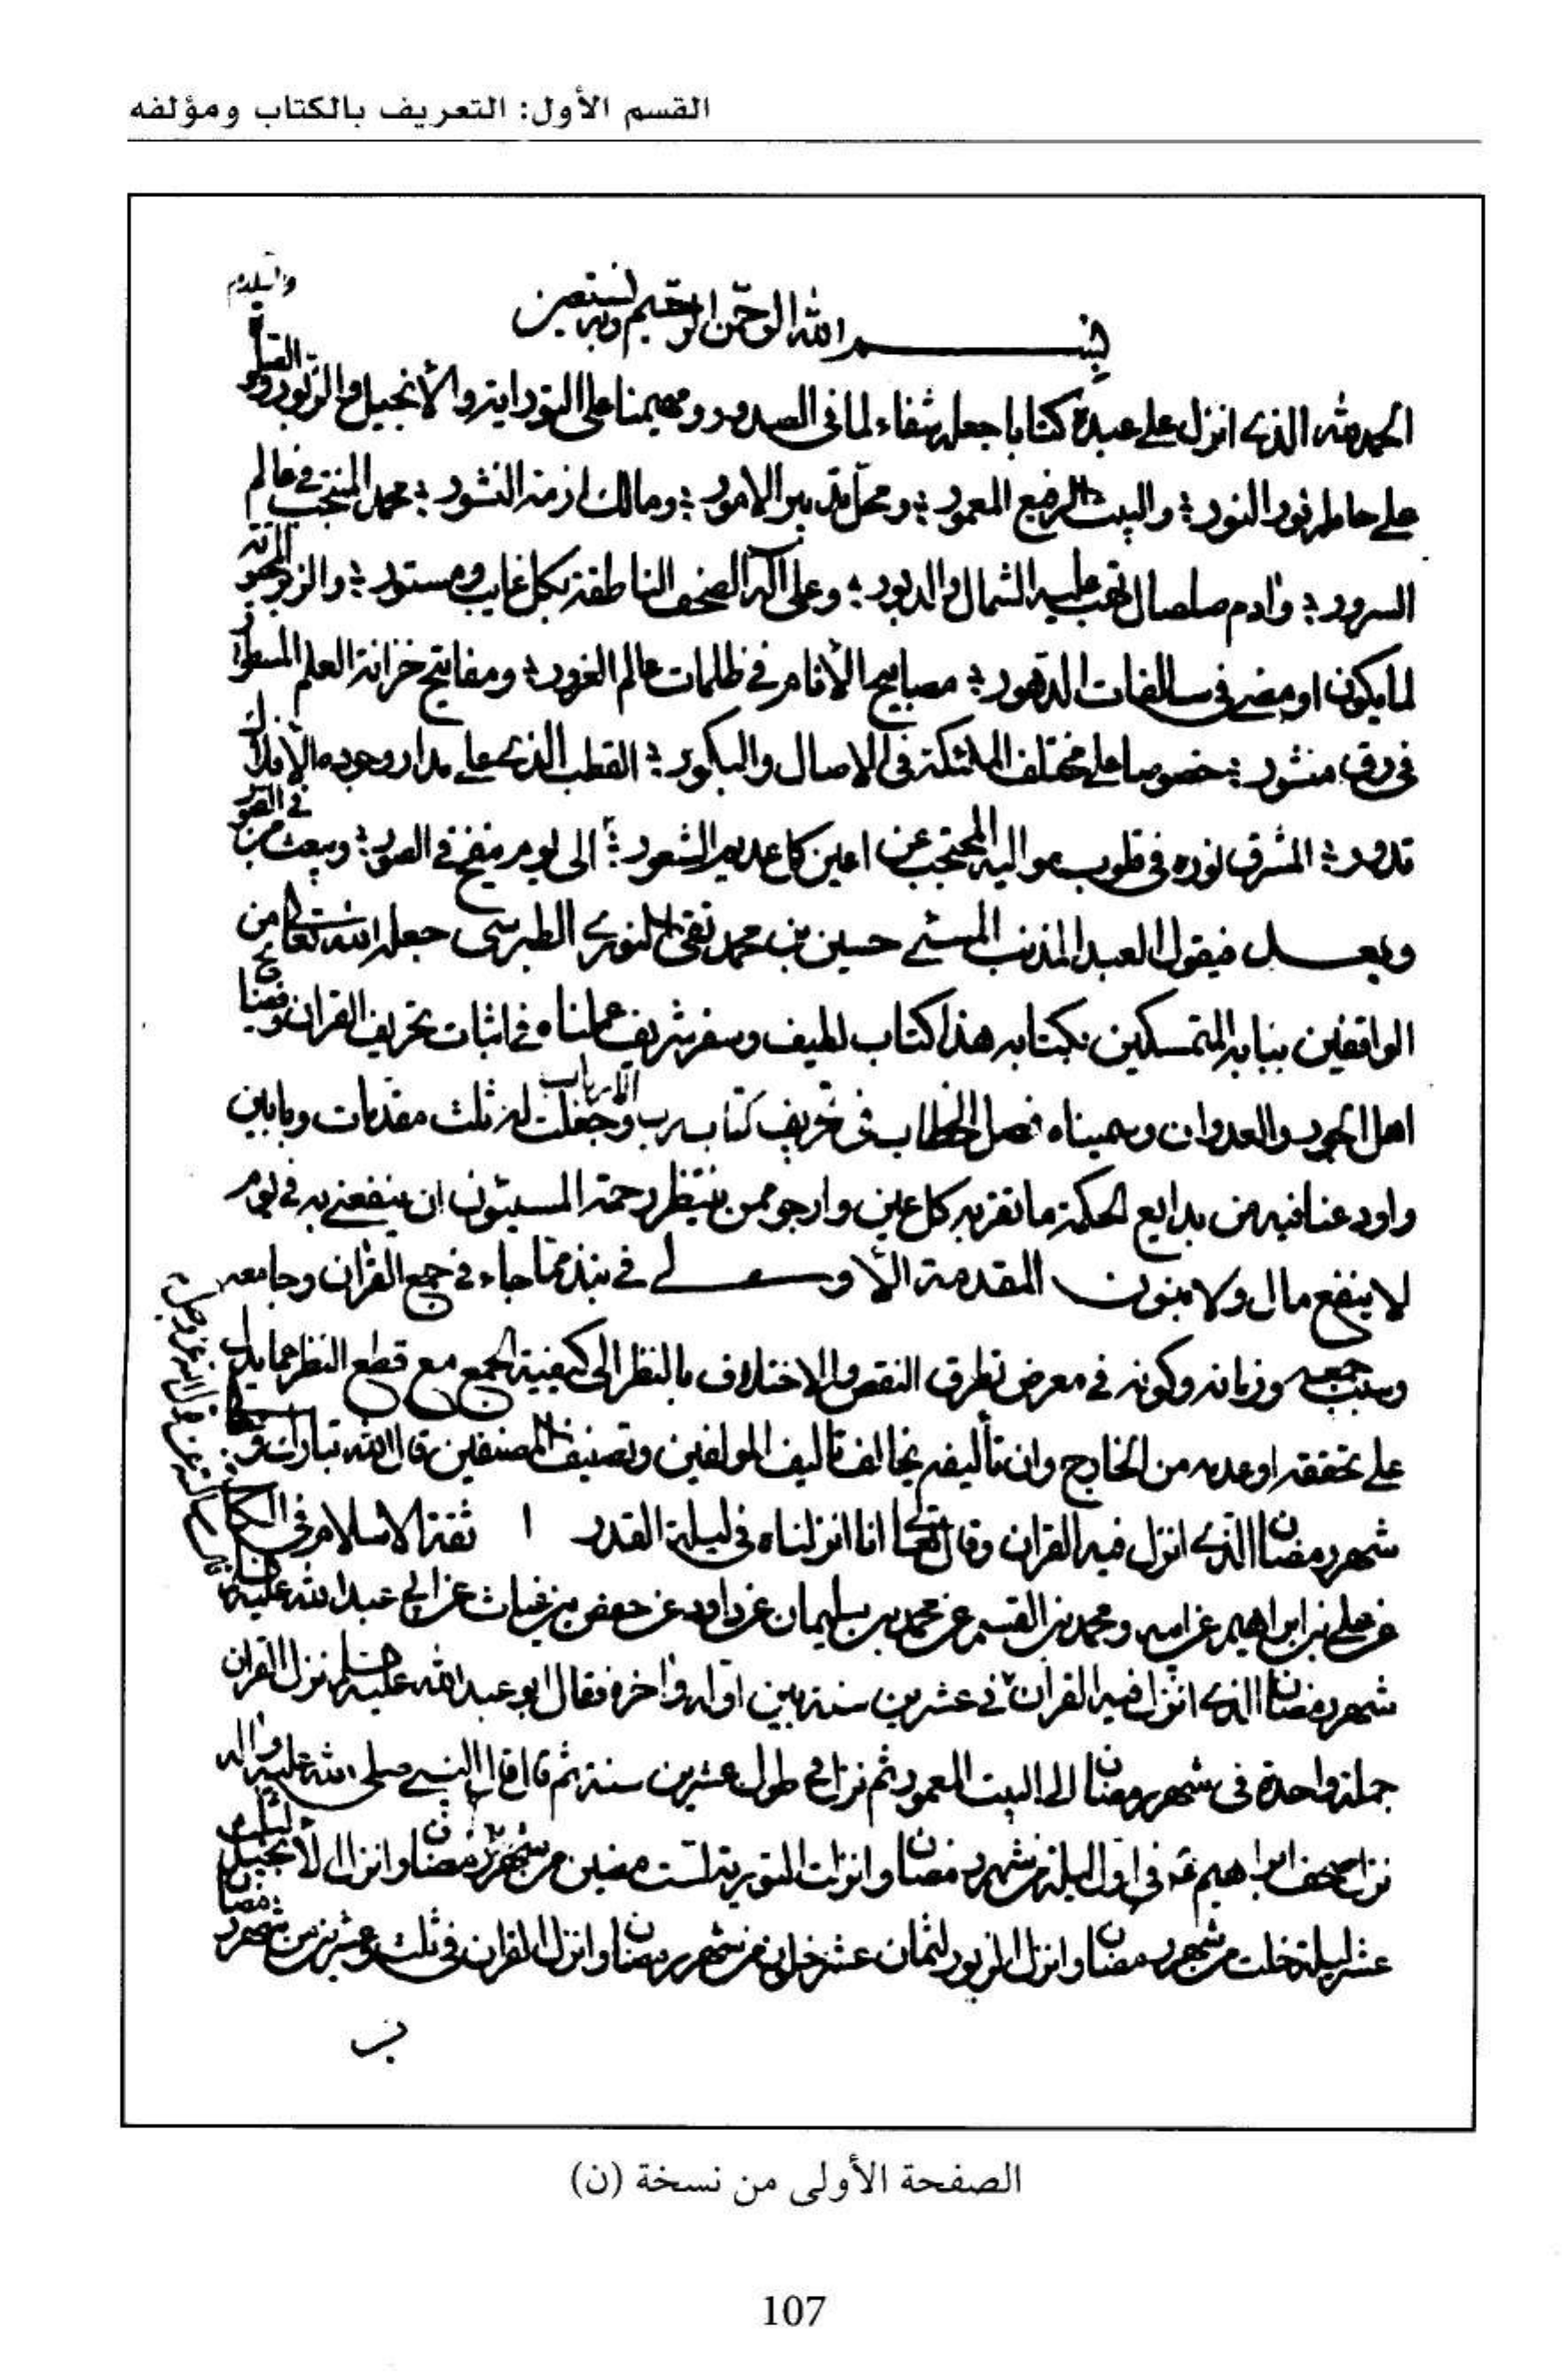 القسم الأول: التعريف بالكتاب ومؤلفه
بسم الله الرحمن الرحيم وبه نستعين
الحمد لله الذي انزل على عبده كتابا جعله شفاء لما في الصدور ومهيمنا على التوراية والأنجيل والزبور
والسلام
على حامله نور النور والبيت الرفيع المعمور ومحل تدبير الامور ومالك ازمة النشور محمد المنتجب في عالم
السرور وادم صلصال تهب عليه الشمال والدبور وعلى آله الصحف الناطقة بكل غايب ومستور والزبر
لما يكون او مضى في سالفات الدهور مصابيح الأنام في ظلمات عالم الغرور ومفاتيح خزانة العلم المسطور
في رق منشور خصوصا على مختلف الملئكة في الاصال والبكور القطب الذي على مدار وجوده الأفلاك
تدور المشرق نوره في قلوب مواليه المحتجب عن اعين كل عديم الشعور الى يوم ينفخ في الصور ويبعث من في القبور
وبعد فيقول العبد المذنب المسئ حسين بن محمد تقي النوري الطبرسي جعله الله تعالى من
الواقفين ببابه المتمسكين بكتابه هذا كتاب لطيف وسفر شريف عملناه في اثبات تحريف القران وفضايح
اهل الجور والعدوان وسميناه فصل الخطاب في تحريف كتاب رب الارباب وجعلت له ثلث مقدمات وبابين
واودعنا فيه من بدايع الحكمة ما تقر به كل عين وارجو ممن ينتظر رحمته المسيئون ان ينفعني به في يوم
لا ينفع مال ولا بنون المقدمة الأولى في نبذ مما جاء في جمع القران وجامعه
وسبب جمعه وزمانه وكونه في معرض تطرق النقص والاختلاف بالنظر الى كيفية الجمع مع قطع النظر عما يدل
على تحققه او عدمه من الخارج وان تأليفه يخالف تاليف المولفين وتصنيف المصنفين قال الله تبارك وتعالى
شهر رمضان الذي انزل فيه القران وقال تعالى انا انزلناه في ليلة القدر ا ثقة الاسلام في الكافي
عن علي بن ابراهيم عن ابيه ومحمد بن القسم عن محمد بن سليمان عن داود عن حفص بن غياث عن ابي عبد الله عليه السلام
شهر رمضان الذي انزل فيه القران في عشرين سنة بين اوله واخره فقال ابو عبد الله عليه السلام نزل القران
جملة واحدة في شهر رمضان الى البيت المعمور ثم نزل في طول عشرين سنة ثم قال قال النبي صلى الله عليه واله
نزل صحف ابراهيم في اول ليلة من شهر رمضان وانزلت التورية لست مضين من شهر رمضان وانزل الأنجيل لثلث
عشر ليلة خلت من شهر رمضان وانزل الزبور لثمان عشر خلون من شهر رمضان وانزل القران في ثلث وعشرين من شهر رمضان
الصفحة الأولى من نسخة (ن)
107